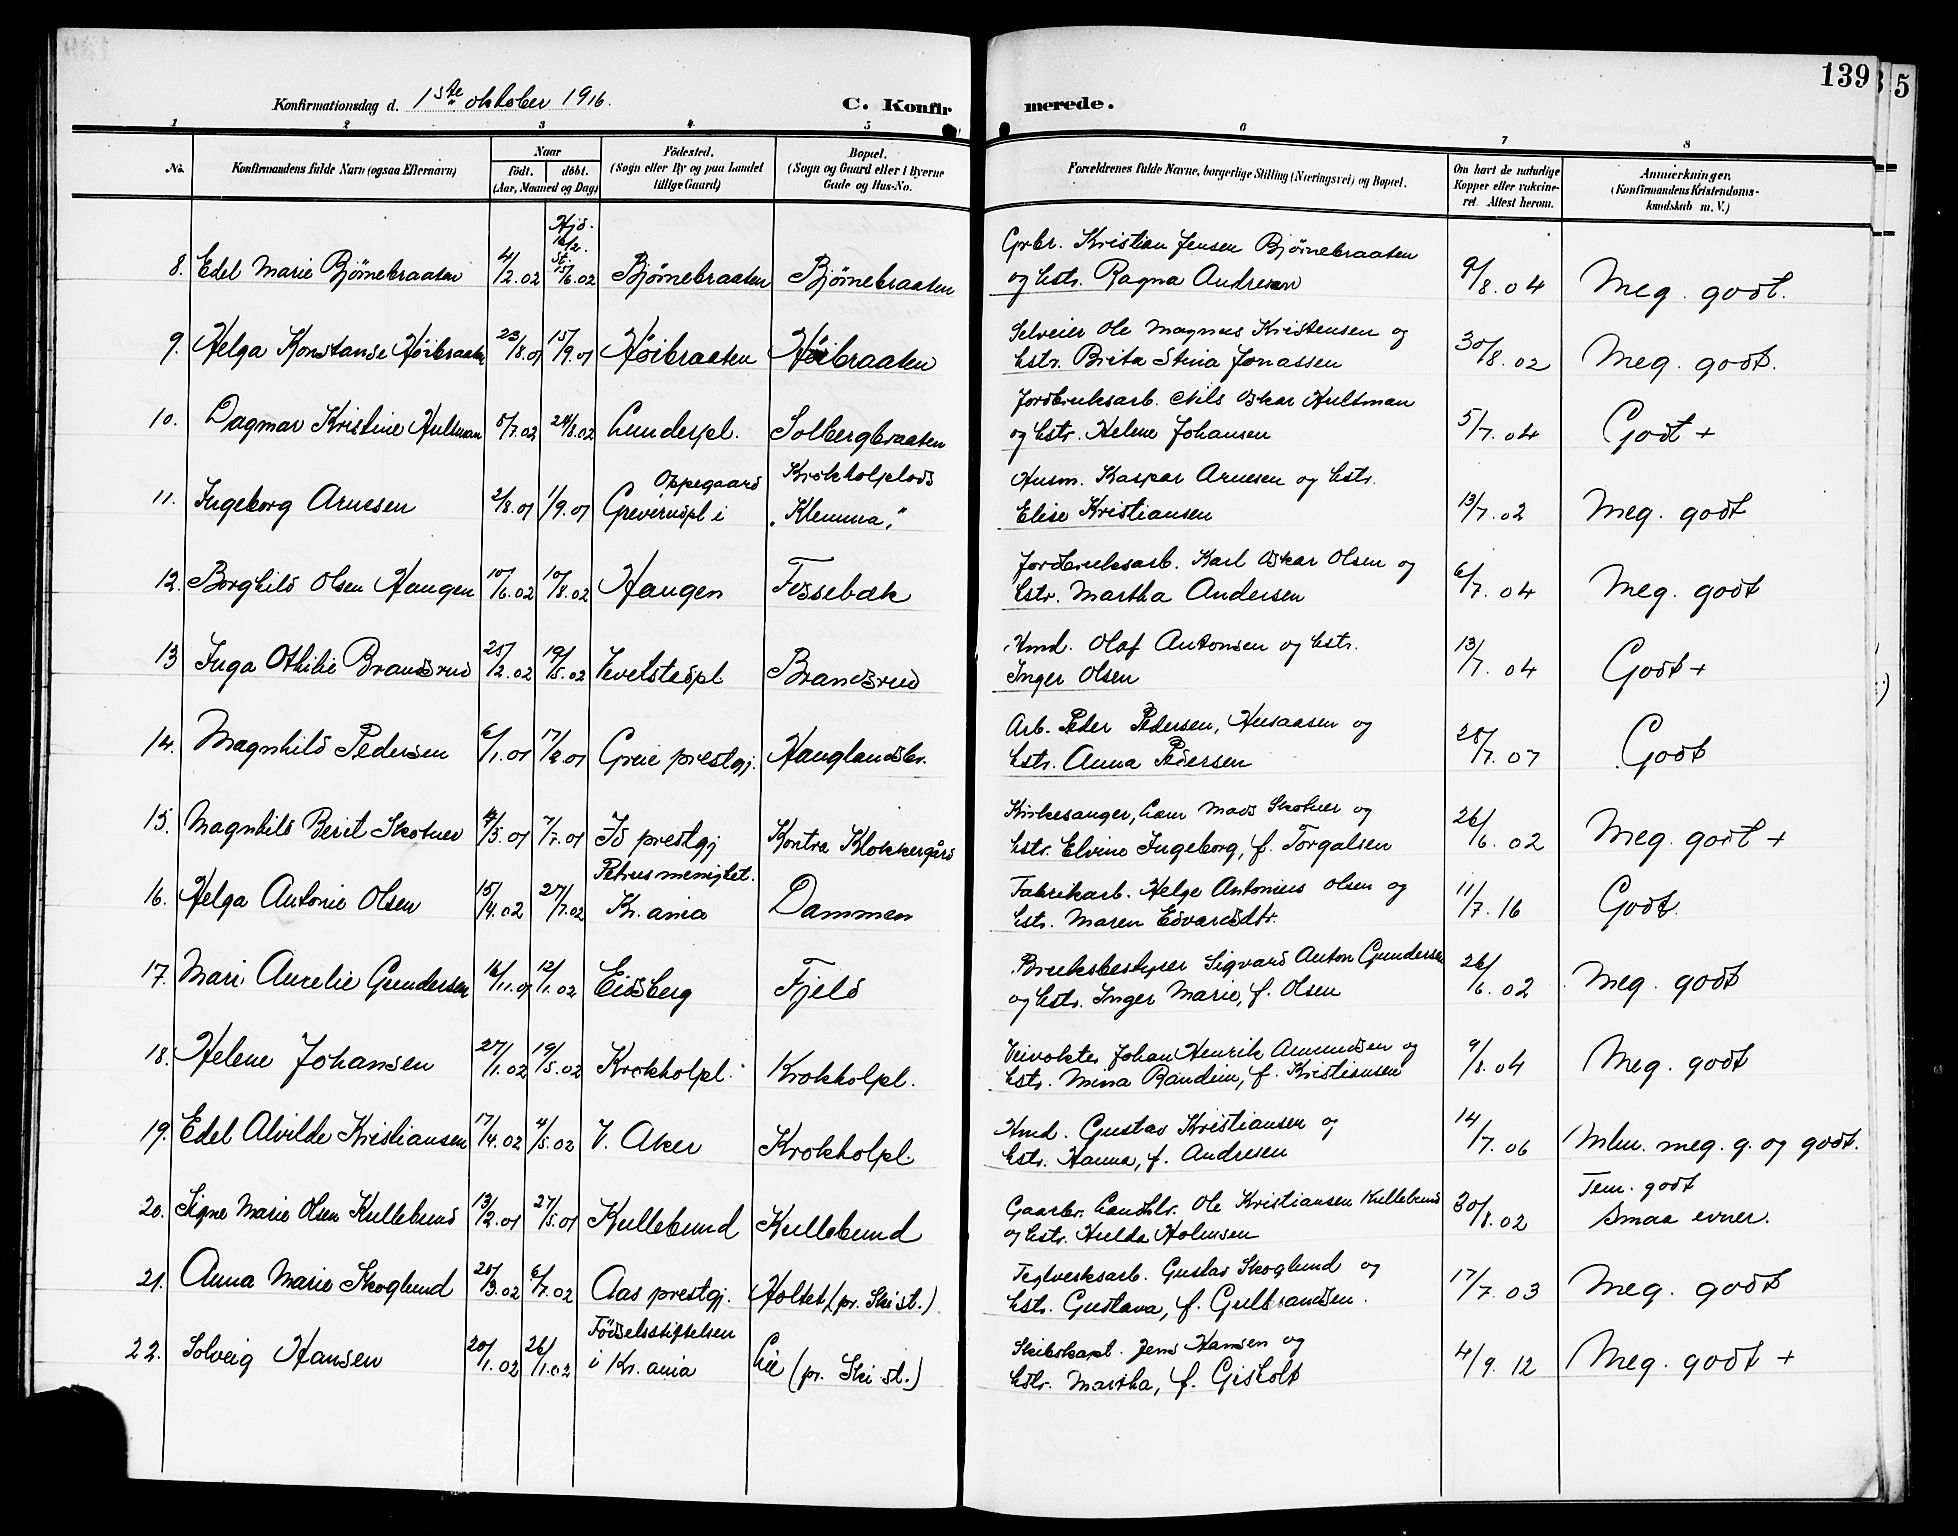 139
5
Konfirmationsdag d. 1ste oktober 1916.
C. Konfirmerede.
1 2 3 4 5 6 7 8
No.
Konfirmandens fulde Navn (ogsaa Efternavn)
Naar
født. døbt.
(Aar, Maaned og Dag)
Fødested.
(Sogn eller By og paa Landet tillige Gaard)
Bopæl.
(Sogn og Gaard eller i Byerne Gade og Hus-No.
Forældrenes fulde Navne, borgerlige Stilling (Næringsvei) og Bopæl.
Om havt de naturlige Kopper eller vakcineret. Attest herom.
Anmerkninger.
(Konfirmandens Kristendomskundskab m. V.)
8. Edel Marie Bjørnebraaten 4/2.02 Hjd. 16/2. St. 15/6.02 Bjørnebraaten Bjørnebraaten Grbr. Kristian Jensen Bjørnebraaten
og hstr. Ragna Andresen 9/8.04 Meg. godt.
9. Helga Konstanse Høibraaten 23/8.01 15/9.01 Høibraaten Høibraaten Selveier Ole Magnus Kristensen og
hstr. Brita Stina Jonassen 30/8.02 Meg. godt.
10. Dagmar Kristine Hultman 5/7.02 24/8.02 Lunderpl. Solbergbraaten Jordbruksarb. Nils Oskar Hultman
og hstr. Helene Johansen 5/7.04 Godt +
11. Ingeborg Arnesen 2/8.01 1/9.01 Greverudpl i Oppegaard Krokholplads
"Klemma" Husm. Kaspar Arnesen og hstr.
Elise Kristiansen 13/7.02 Meg. godt
12. Borghild Olsen Haugen 10/6.02 10/8.02 Haugen Fossebæk Jordbruksarb. Karl Oskar Olsen og
hstr. Martha Andersen 6/7.04 Meg. godt
13 Inga Othilie Brandsrud 25/2.02 19/5.02 Vevelstadpl Brandsrud Hmd. Olaf Antonsen og hstr.
Inger Olsen 13/7.04 Godt +
14. Magnhild Pedersen 6/1.01 Greue prestgj. Hauglandsbr. Arb. Peder Pedersen, Husaasen og
hstr. Anna Pedersen 28/7.07 Godt
15. Magnhild Berit Skotner 7/7.01 Is prestgj Kontra Klokkergård Kirkesanger, Mads Skotner og
hstr. Elvine Ingeborg, f. Torgalsen 26/6.02 Meg. godt +
16. Helga Antonie Olsen 15/4.02 27/7.02 Petrus menighet.
Kr.ania Dammen Fabrikarb. Helge Antonius Olsen og
hstr. Maren Edvardsdtr. 11/7.16 Godt.
17. Mari Aurelie Gundersen 16/11.01 12/1.02 Eidsberg Fjeld Bruksbestyrer Sigvard Anton Gundersen
og hstr. Inger Marie, f. Olsen 26/6.02 Meg. godt
18. Helene Johansen 27/1.02 19/5.02 Krokholpl. Krokholpl. Veivokter Johan Henrik Amundsen og
hstr. Mina Randine, f. Kristiansen 9/8.04 Meg. godt
19. Edel Alvilde Kristiansen 17/4.02 4/5.02 V. Aker Krokholpl. Hmd. Gustav Kristiansen og
hstr. Hanna, f. Andresen 14/7.06 Mlm. meg. g. og godt.
20. Signe Marie Olsen Kullebund 13/2.01 27/5.01 Kullebund Kullebund Gaarbr. Landhlr. Ole Kristiansen Kullebund
og hstr. Hulda Holmsen 30/8.02 Tem. godt
Smaa evner.
21. Anna Marie Skoglund 20/3.02 6/7.02 Aas prestgj. Holtet (pr. Ski st.) Teglverksarb. Gustav Skoglund og
hstr. Gustava, f. Gulbrandsen. 17/7.03 Meg. godt
22. Solveig Hansen 20/1.02 26/1.02 Fødselsstiftelsen
i Kr.ania Lie (pr. Ski st.) Skibskapt. Jens Hansen og
hstr. Martha, f. Gisholt 4/9.12 Meg. godt +